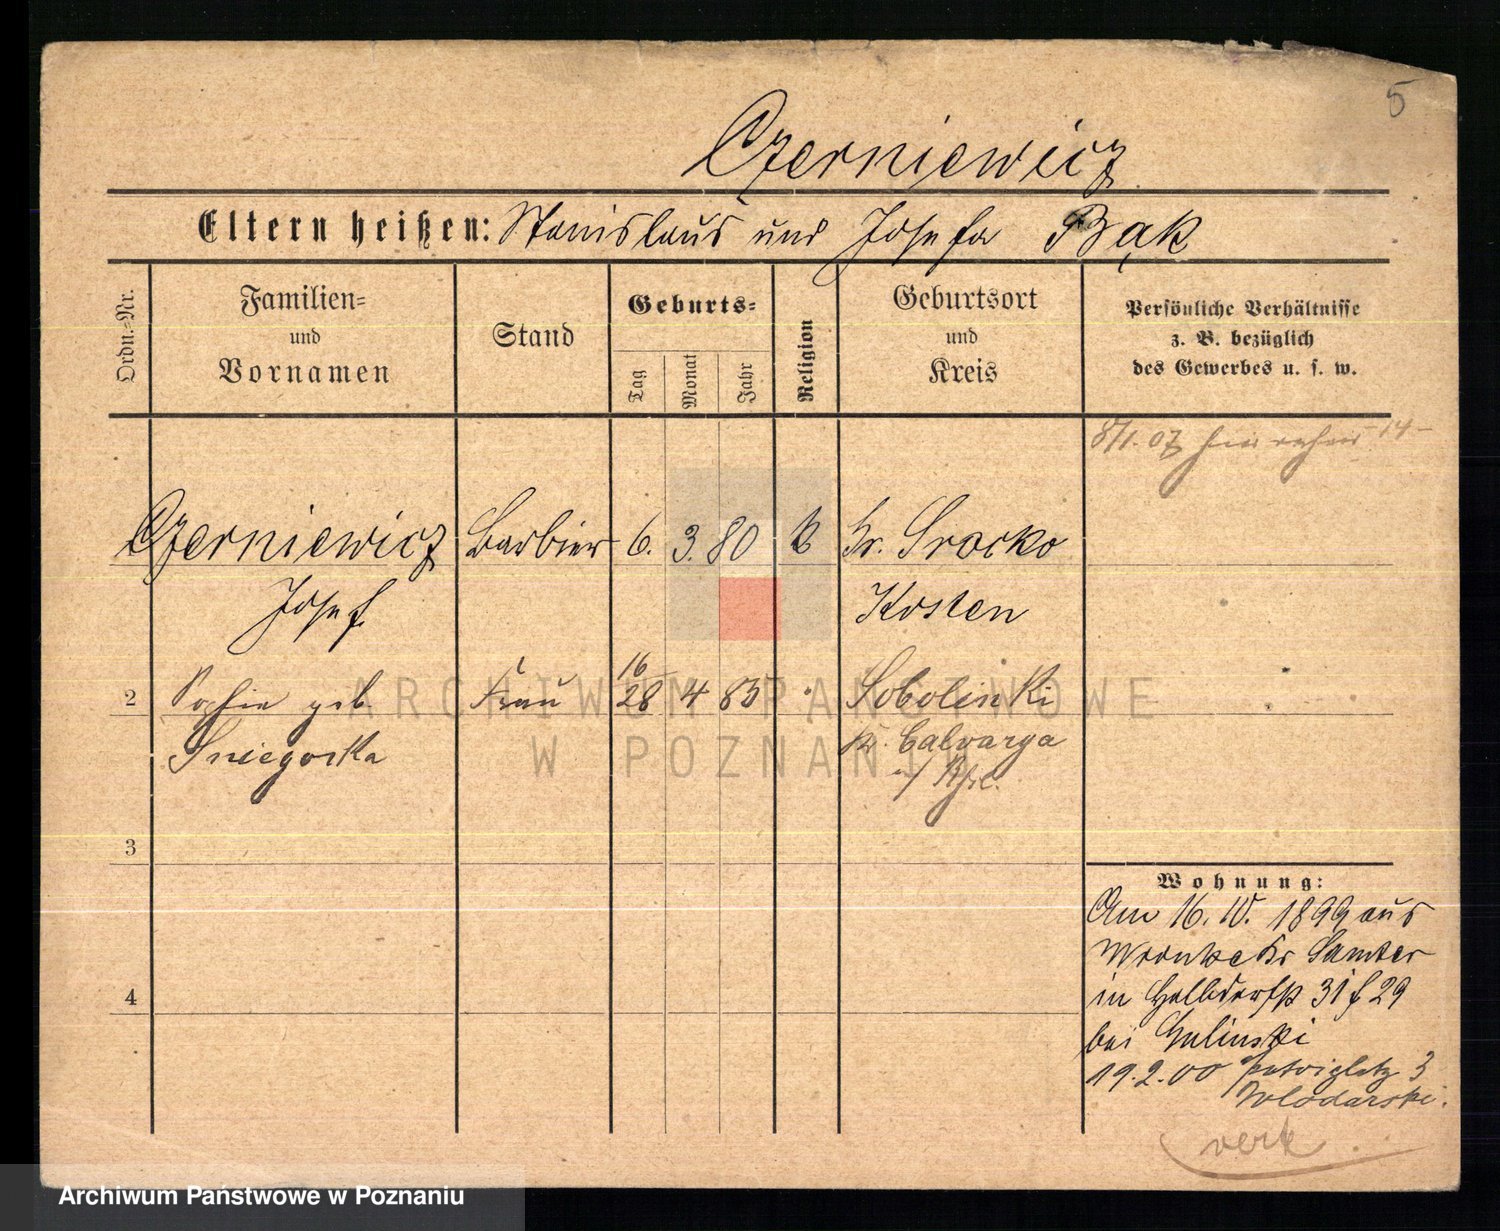 5
Czerniewicz
Eltern heißen: Stanislaus und Josefa Bąk
Ordn.-Nr.
Familien-
und
Vornamen
Stand
Geburts-
Tag
Monat
Jahr
Religion
Geburtsort
und
Kreis
Persönliche Verhältnisse
z. B. bezüglich
des Gewerbes u. s. w.
8/1. 07
Czerniewicz Barbier 6. 3. 80 k Gr. Srocko
Josef Kosten
16
2 Sophie geb. Frau 28 4 83 Sobolinki
Sniegocka Calvarya
ARCHIWUM PAŃSTWOWE
W POZNANIU
3
Wohnung:
Am 16. IV. 1899 aus
Wronke Kr Samter
in Halbdorfstr 31 f 29
4
bei Gulinski
19.2.00 Petriplatz 3
Wlodarski.
verh
Archiwum Państwowe w Poznaniu